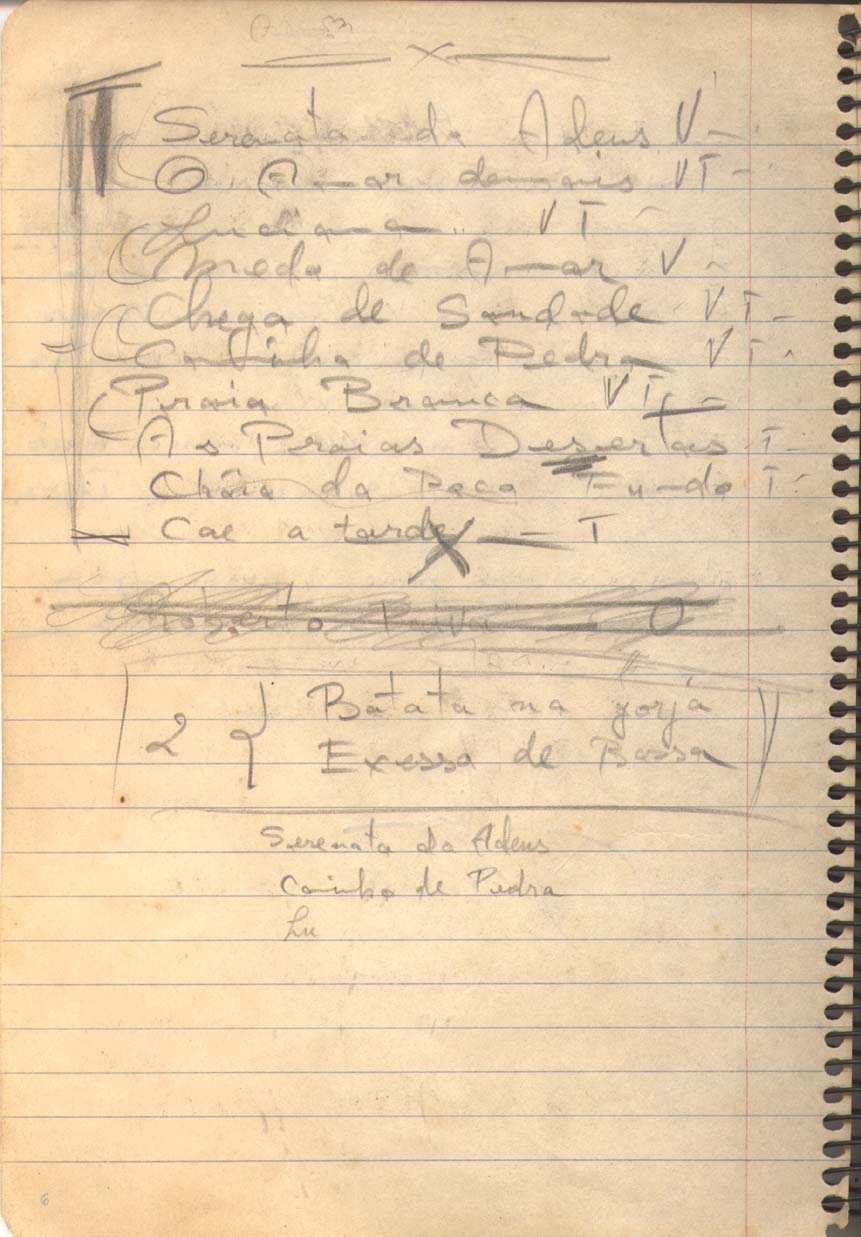 Serenata do Adeus V -
O Amar demais VI -
Luciana VI -
Medo de Amar V -
Chega de Saudade VI -
Caminho de Pedra VI -
Praia Branca VI -
As Praias Desertas I -
Chôra da Poca Funda I -
Cae a tarde — I
Roberto
2 { Batata na gorja
Exessa de Bossa
Serenata do Adeus
Caminho de Pedra
Lu
6